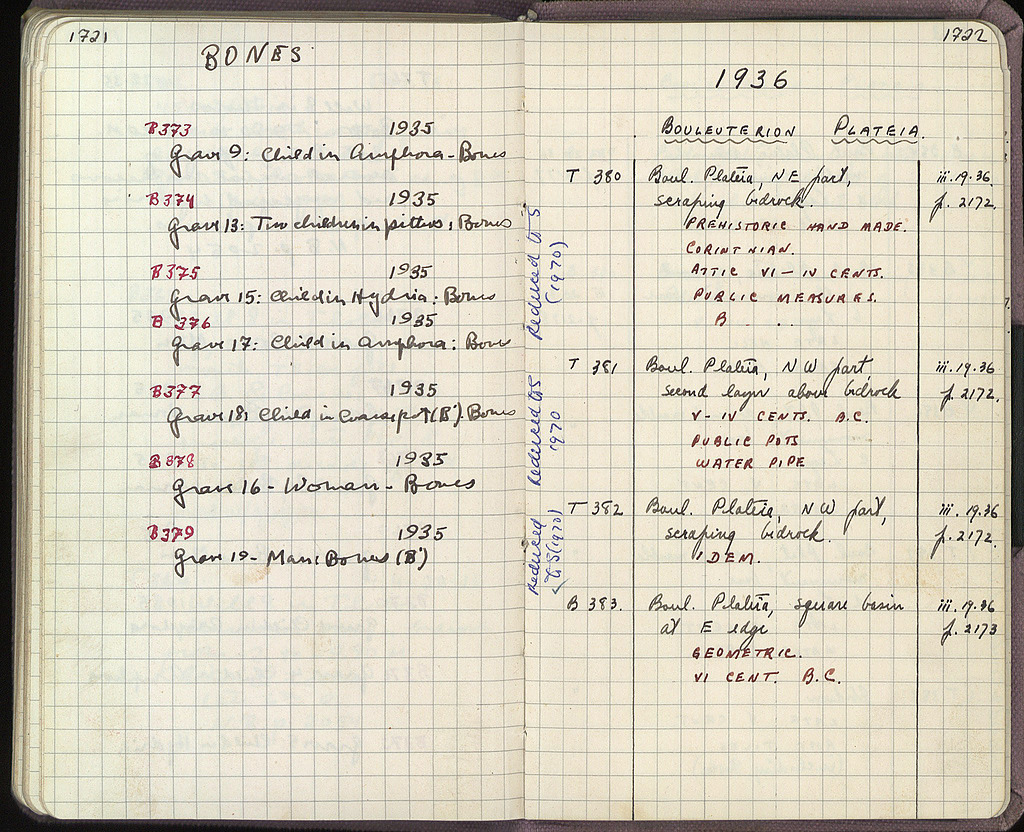 1721
BONES
B373 1935
Grave 9: Child in Amphora - Bones
B374 1935
Grave 13: Two children in pithos: Bones
B375 1935
Grave 15: Child in Hydria: Bones
B 376 1935
Grave 17: Child in Amphora: Bones
B377 1935
Grave 18: Child in Coarse pot (B'). Bones
B378 1935
Grave 16 - Woman - Bones
B379 1935
Grave 19 - Man: Bones (B')
1722
1936
BOULEUTERION PLATEIA.
T 380 Boul. Plateia, NE part, iii.19.36.
scraping bedrock. p. 2172.
PREHISTORIC HAND MADE.
CORINTHIAN.
ATTIC VI - IV CENTS.
PUBLIC MEASURES.
B . . .
Reduced to S
(1970)
T 381 Boul. Plateia, NW part iii.19.36
second layer above bedrock p. 2172.
V - IV CENTS. B.C.
PUBLIC POTS
WATER PIPE
Reduced to S
1970
T 382 Boul. Plateia, NW part, iii.19.36
scraping bedrock. p. 2172.
IDEM.
Reduced
to S (1970)
B 383. Boul. Plateia, square basin iii.19.36
at E edge p. 2173
GEOMETRIC.
VI CENT. B.C.